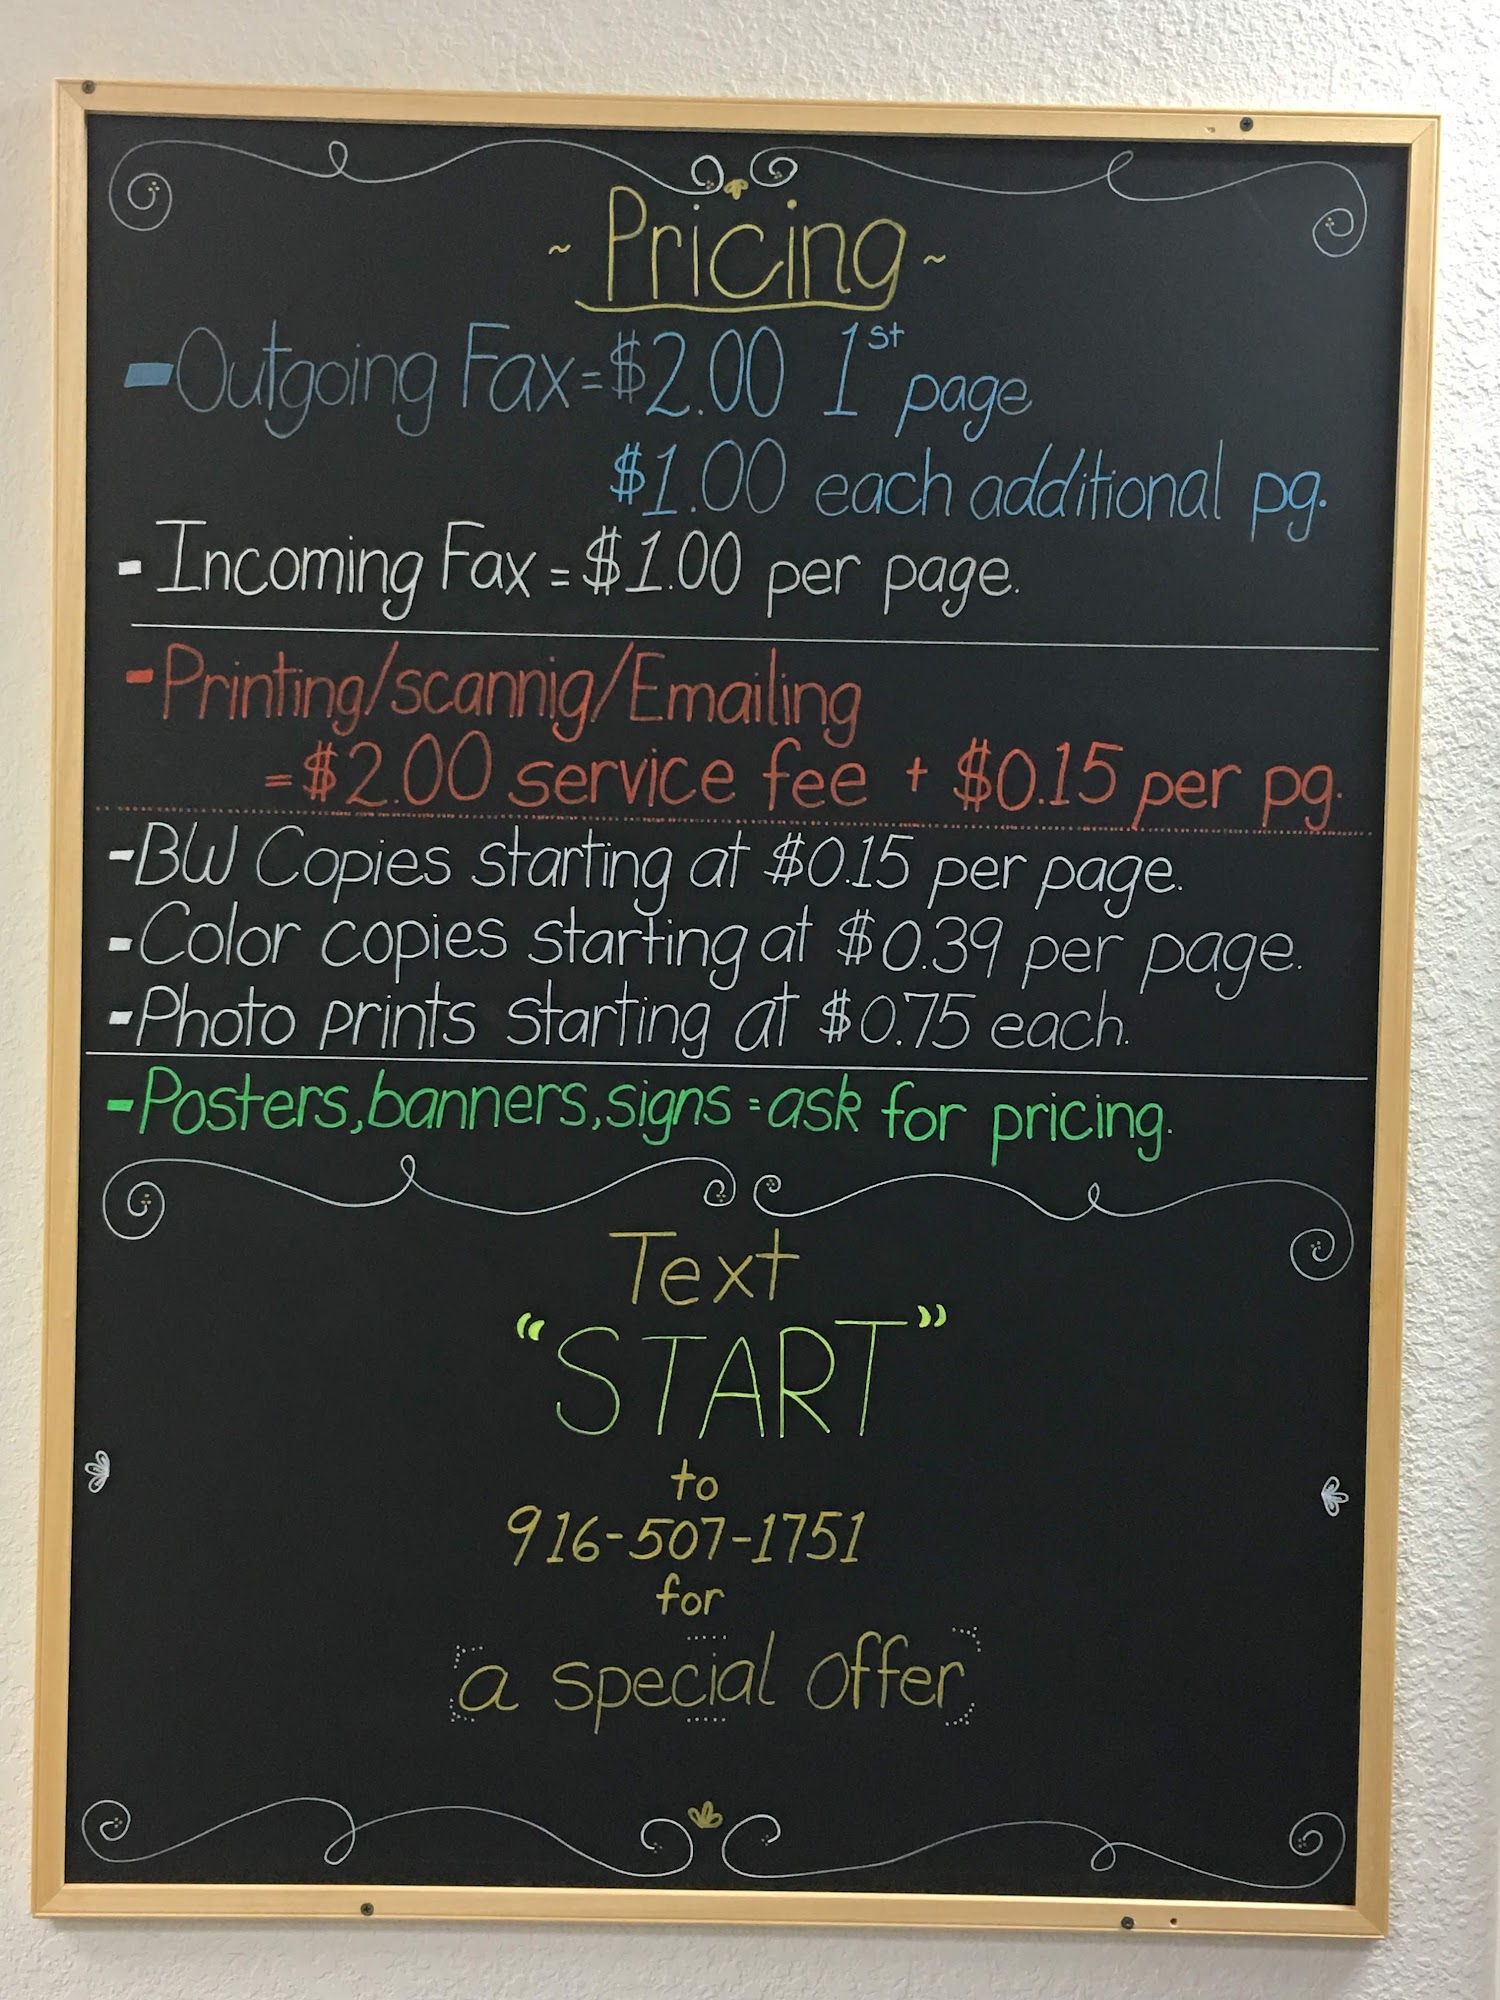 ~ Pricing ~
-Outgoing Fax = $2.00 1st page
$1.00 each additional pg.
- Incoming Fax = $1.00 per page.
-Printing/scannig/Emailing
= $2.00 service fee + $0.15 per pg.
-BW Copies starting at $0.15 per page.
-Color copies starting at $0.39 per page.
-Photo prints starting at $0.75 each.
-Posters, banners, signs = ask for pricing.
Text
"START"
to
916-507-1751
for
a special offer